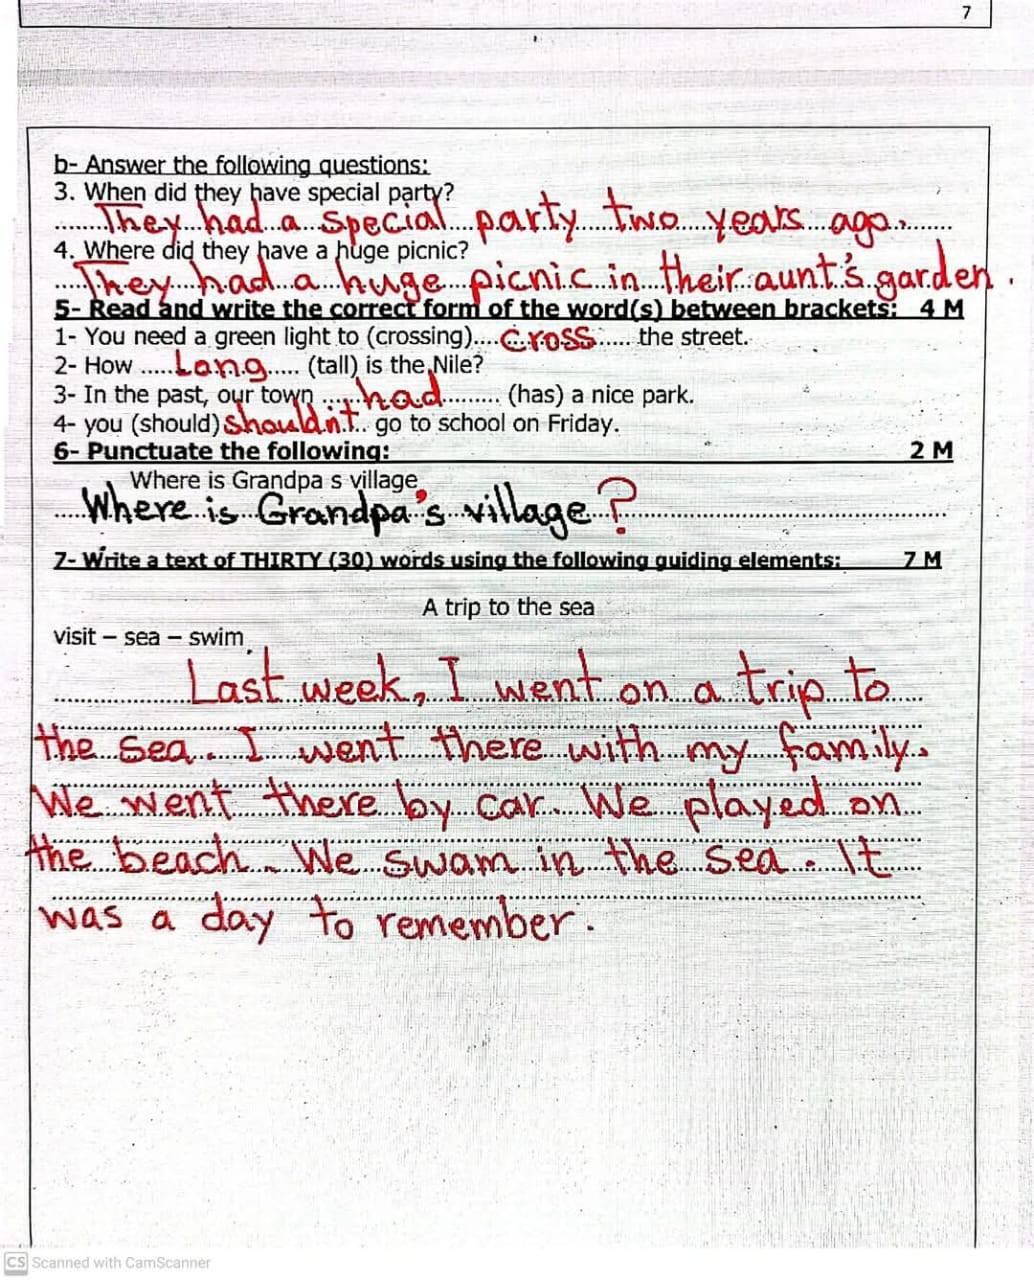 7
b- Answer the following questions:
3. When did they have special party?
......They had a special party two years ago.......
4. Where did they have a huge picnic?
.....They had a huge picnic in their aunt's garden.
5- Read and write the correct form of the word(s) between brackets: 4 M
1- You need a green light to (crossing)....cross...... the street.
2- How .....Long..... (tall) is the Nile?
3- In the past, our town ....had......... (has) a nice park.
4- you (should)shouldn't.. go to school on Friday.
6- Punctuate the following: 2 M
Where is Grandpa s village
.....Where is Grandpa's village?......
7- Write a text of THIRTY (30) words using the following guiding elements: 7 M
A trip to the sea
visit – sea – swim
Last week, I went on a trip to
the sea. I went there with my family.
We went there by car. We played on
the beach. We swam in the sea. It
was a day to remember.
CS Scanned with CamScanner